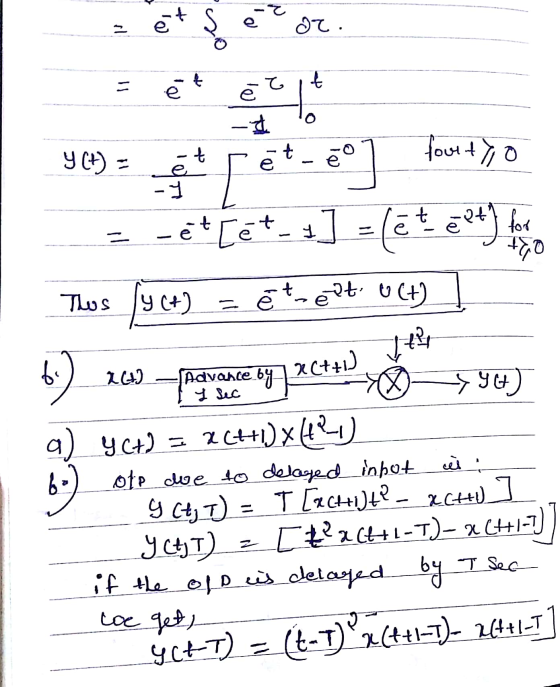 = e^-t ∫_0 e^-τ ∂τ.
= e^-t e^-τ/-1 |_0^t
y(t) = e^-t/-1 [e^-t - e^-0] for t ≥ 0
= -e^-t [e^-t - 1] = (e^-t - e^-2t) for t ≥ 0
Thus y(t) = e^-t - e^-2t. U(t)
6.) x(t) Advance by 1 Sec x(t+1) X t^2-1 y(t)
a) y(t) = x(t+1) x (t^2-1)
b.) o/p due to delayed input is :
y(t,T) = T[x(t+1)t^2 - x(t+1)]
y(t,T) = [t^2 x(t+1-T) - x(t+1-T)]
if the o/p is delayed by T Sec
we get,
y(t-T) = (t-T)^2 x(t+1-T) - x(t+1-T]